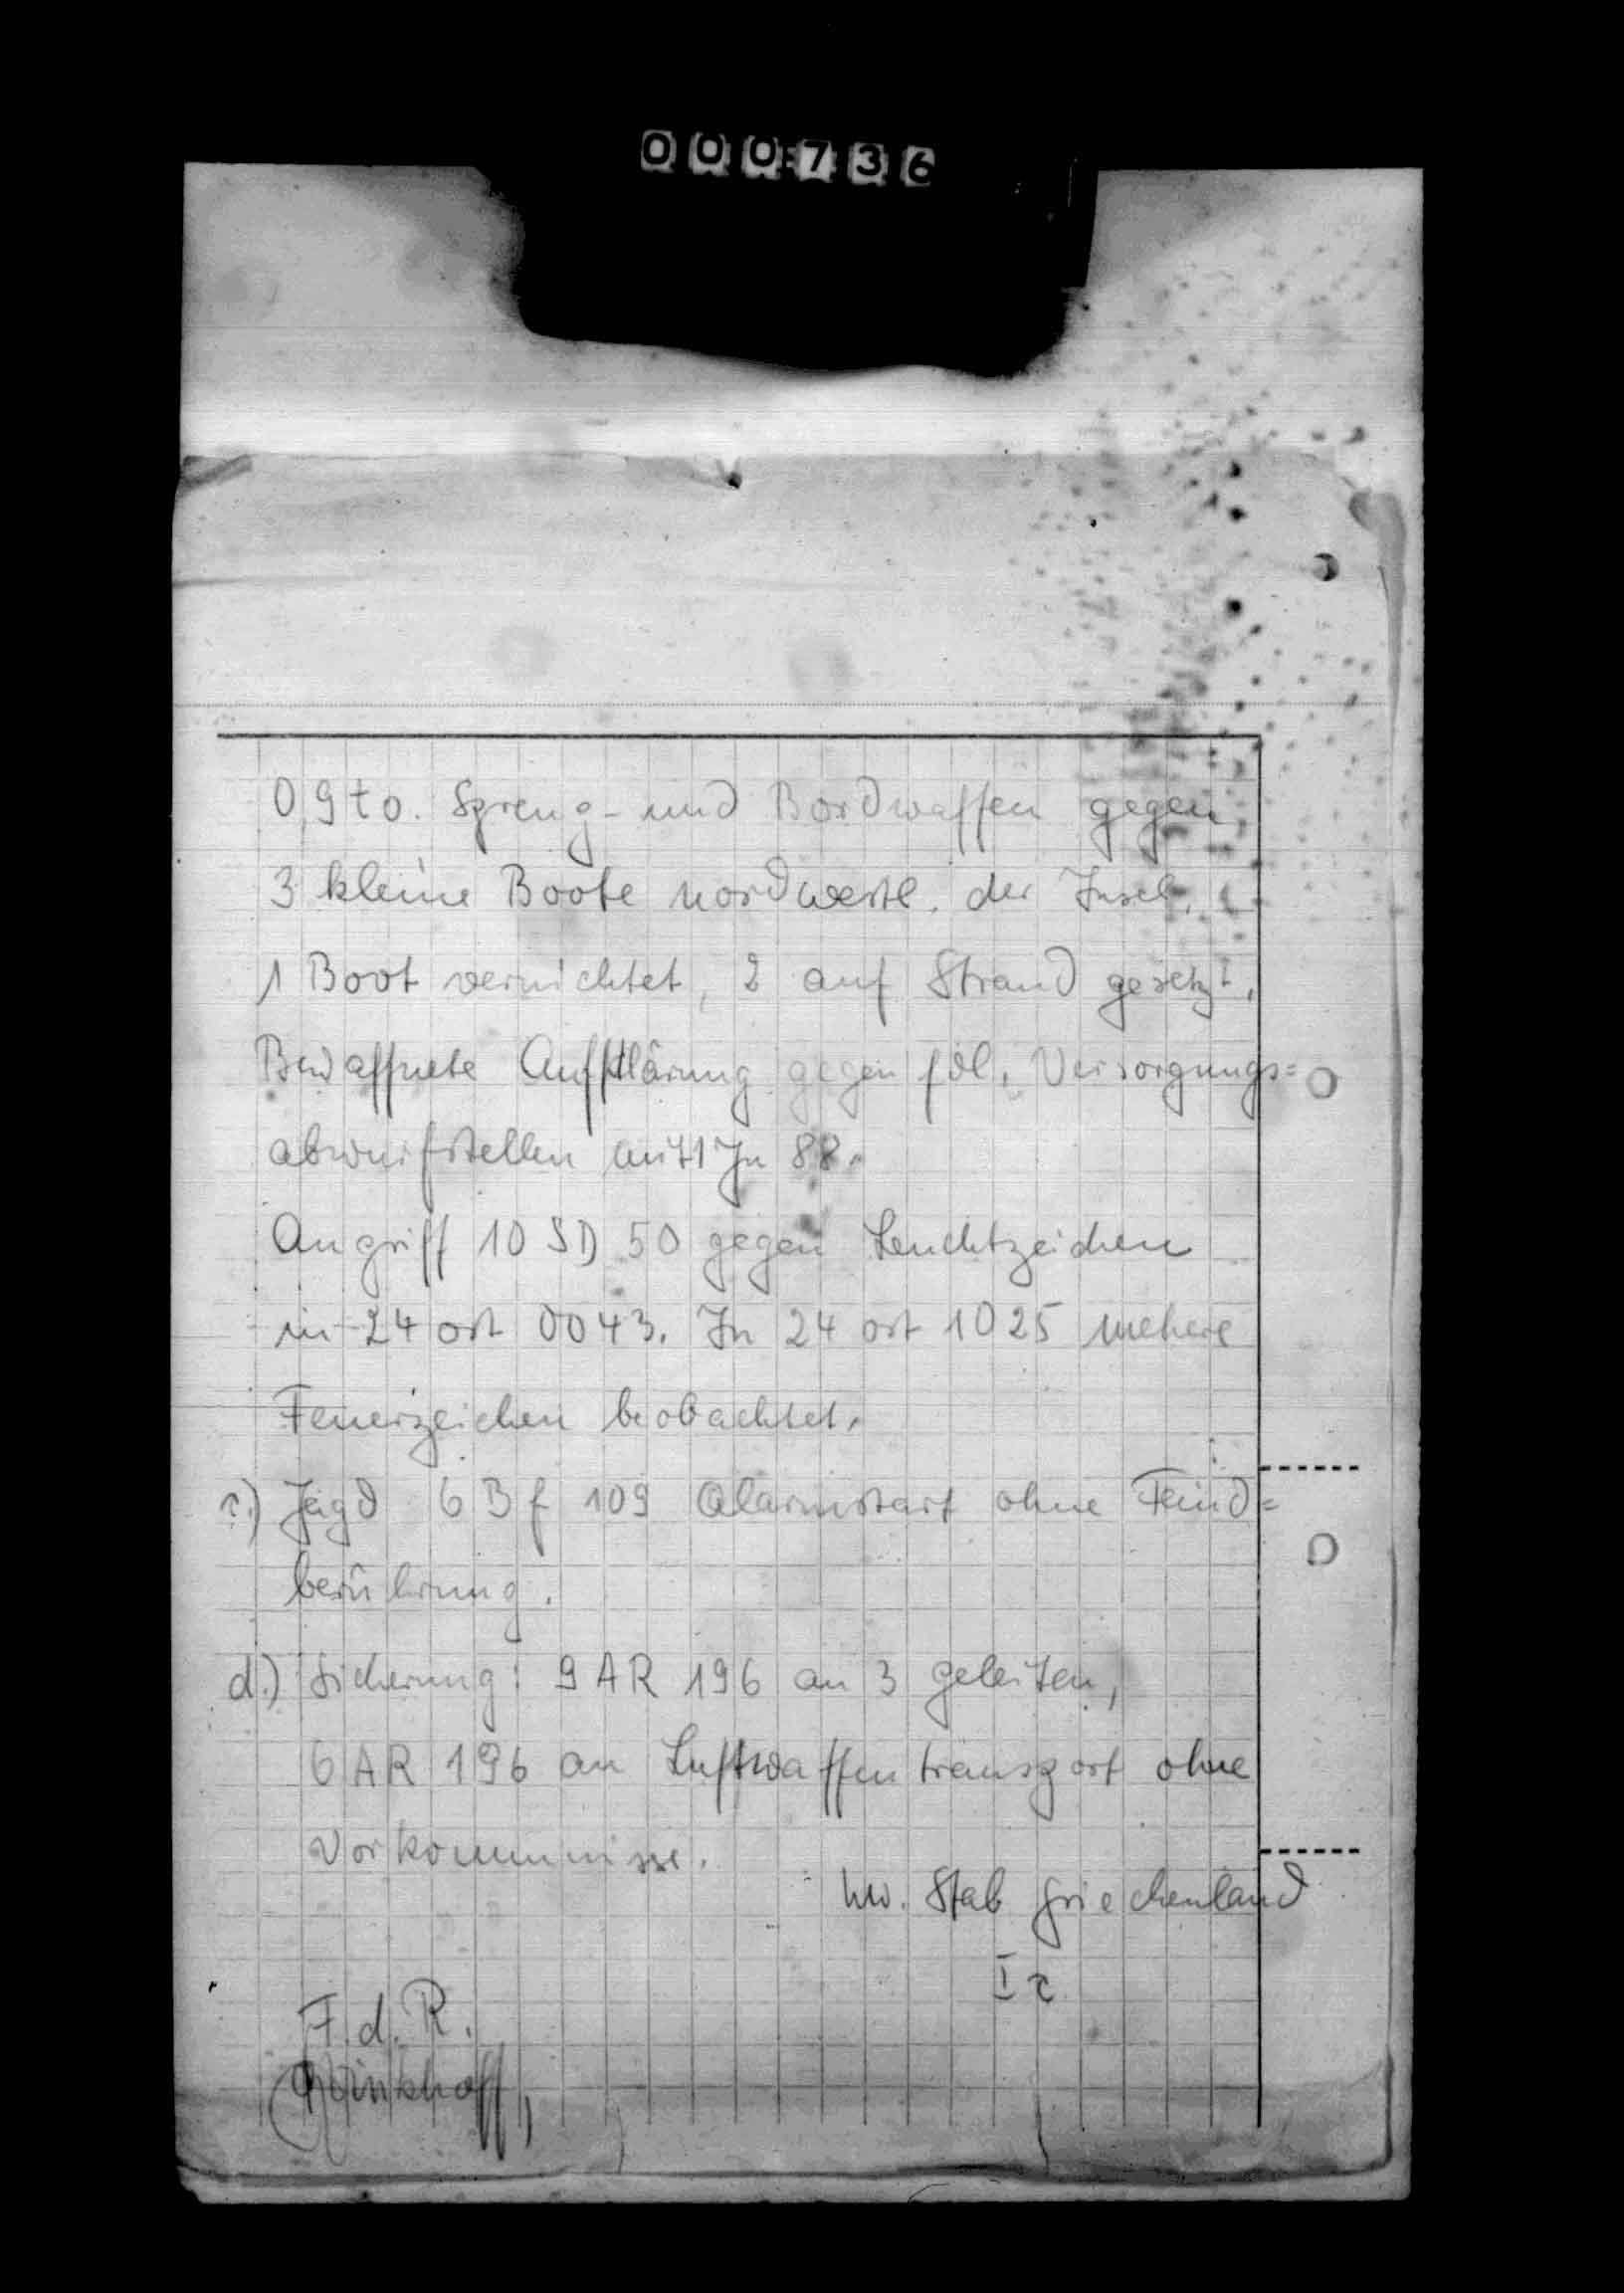 000736
0,9 to. Spreng- und Bordwaffen gegen
3 kleine Boote nordwestl. der Insel.
1 Boot vernichtet, 2 auf Strand gesetzt.
Bewaffnete Aufklärung gegen fdl. Versorgungs=
abwurfstellen mit 1 Ju 88.
Angriff 10 SD 50 gegen Leuchtzeichen
in 24 ost 0043. In 24 ost 1025 mehere
Feuerzeichen beobachtet.
c.) Jagd 6 Bf 109 Alarmstart ohne Feind=
berührung.
d.) Sicherung: 9 AR 196 an 3 Geleiten,
6 AR 196 an Luftwaffentransport ohne
Vorkommnisse.
Lw. Stab Griechenland
Ic
F.d.R.